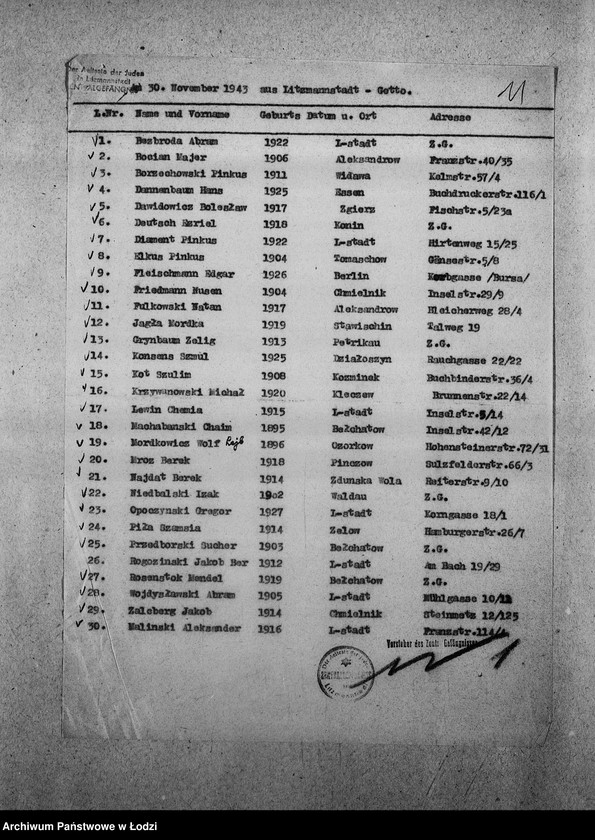 Der Aelteste der Juden
in Litzmannstadt
11
30. November 1943 aus Litzmannstadt - Getto.
L.Nr. Name und Vorname Geburts Datum u. Ort Adresse
1. Bezbroda Abram 1922 L-stadt Z.G.
2. Bocian Majer 1906 Aleksandrow Franzstr.40/35
3. Borzechowski Pinkus 1911 Widawa Kelmstr.57/4
4. Dannenbaum Hans 1925 Essen Buchdruckerstr.116/1
5. Dawidowicz Bolesław 1917 Zgierz Fischstr.5/23a
6. Deutsch Ezriel 1918 Konin Z.G.
7. Diament Pinkus 1922 L-stadt Hirtenweg 15/25
8. Elkus Pinkus 1904 Tomaschow Gänsestr.5/8
9. Fleischmann Edgar 1926 Berlin /Bursa/
10. Friedmann Nusen 1904 Chmielnik Inselstr.29/9
11. Fulkowski Natan 1917 Aleksandrow Bleicherweg 28/4
12. Jagła Mordka 1919 Stawischin Talweg 19
13. Grynbaum Zelig 1913 Petrikau Z.G.
14. Konsens Szmul 1925 Działoszyn Rauchgasse 22/22
15. Kot Szulim 1908 Kozminek Buchbinderstr.36/4
16. Krzywanowski Michał 1920 Kleczew Brunnenstr.22/14
17. Lewin Chemia 1915 L-stadt Inselstr.5/14
18. Machabanski Chaim 1895 Bełchatow Inselstr.42/12
19. Mordkowicz Wolf Lajb 1896 Ozorkow Hohensteinerstr.72/31
20. Mroz Berek 1918 Pinczow Sulzfelderstr.66/3
21. Najdat Berek 1914 Zdunska Wola Reiterstr.9/10
22. Niedbalski Izak 1902 Waldau Z.G.
23. Opoczynski Gregor 1927 L-stadt Korngasse 18/1
24. Piła Szamsia 1914 Zelow Hamburgerstr.26/7
25. Przedborski Sucher 1903 Bełchatow Z.G.
26. Rogozinski Jakob Ber 1912 L-stadt Am Bach 19/29
27. Rosenstok Mendel 1919 Bełchatow Z.G.
28. Wojdysławski Abram 1905 L-stadt Mühlgasse
29. Zalcberg Jakob 1914 Chmielnik Steinmetz 12/125
30. Malinski Aleksander 1916 L-stadt Franzstr.
Vorsteher des Zentr. Gefängnisses
Archiwum Państwowe w Łodzi